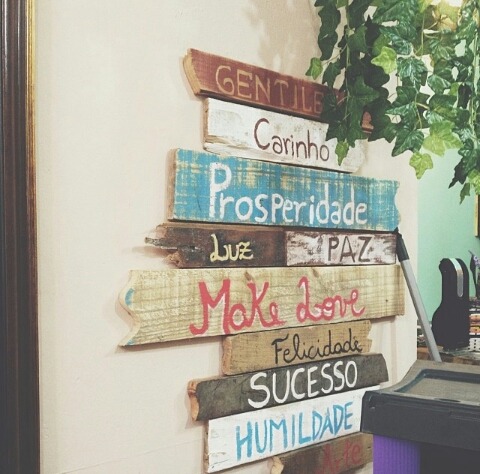 GENTILE
Carinho
Prosperidade
Luz PAZ
Make Love
Felicidade
SUCESSO
HUMILDADE